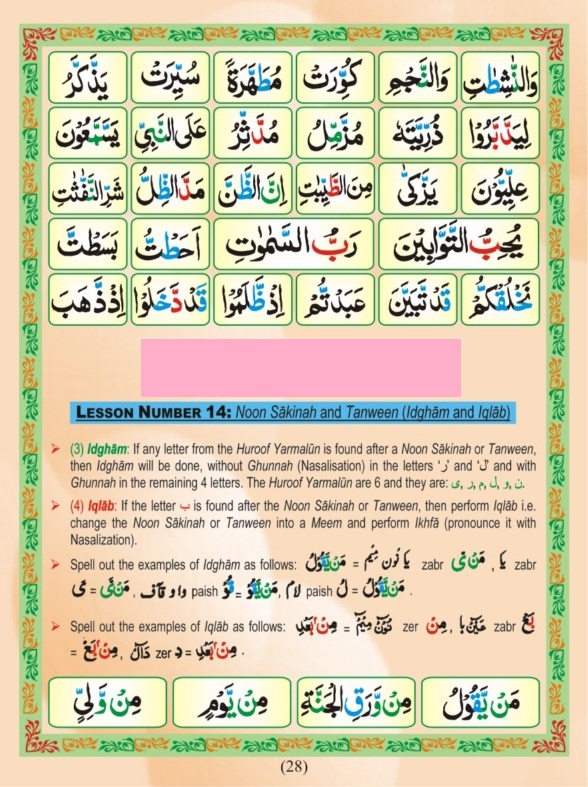 وَالنّٰشِطٰتِ وَالنَّجْمِ كُوِّرَتْ مُطَهَّرَةً سُيِّرَتْ يَذَّكَّرُ
لِيَدَّبَّرُوْا ذُرِّيَّتَهٗ مُزَّمِّلُ مُدَّثِّرُ عَلَى النَّبِيِّ يَسَّمَّعُوْنَ
عِلِّيُّوْنَ يَزَّكّٰى مِنَ الطَّيِّبٰتِ اِنَّ الظَّنَّ مَدَّ الظِّلَّ شَرِّ النَّفّٰثٰتِ
يُحِبُّ التَّوَّابِيْنَ رَبُّ السَّمٰوٰتِ اَحَطْتُّ بَسَطْتَّ
نَخْلُقْكُّمْ قَدْ تَّبَيَّنَ عَبَدْتُّمْ اِذْ ظَّلَمُوْا قَدْ دَّخَلُوْا اِذْ ذَّهَبَ
LESSON NUMBER 14: Noon Sākinah and Tanween (Idghām and Iqlāb)
➤ (3) Idghām: If any letter from the Huroof Yarmalūn is found after a Noon Sākinah or Tanween,
then Idghām will be done, without Ghunnah (Nasalisation) in the letters 'ر' and 'ل' and with
Ghunnah in the remaining 4 letters. The Huroof Yarmalūn are 6 and they are: ی, ر, م, ل, و, ن.
➤ (4) Iqlāb: If the letter ب is found after the Noon Sākinah or Tanween, then perform Iqlāb i.e.
change the Noon Sākinah or Tanween into a Meem and perform Ikhfā (pronounce it with
Nasalization).
➤ Spell out the examples of Idghām as follows: مَنْ يَّقُوْلُ = يَا نُون مِيْم zabr مَنْ ی , يَا zabr
مَنْ یَّ = یَ , وَاو قَاف paish مَنْ يَّقُوْ = قُوْ , لَام paish مَنْ يَّقُوْلُ = لُ .
➤ Spell out the examples of Iqlāb as follows: مِنْۢ بَعْدِ = مِيْم نُوْن zer مِنْ , بَا عَيْن zabr بَعْ
= مِنْۢ بَعْ , دَالْ zer دِ = مِنْۢ بَعْدِ .
مَنْ يَّقُوْلُ مِنْ وَّرَقِ الْجَنَّةِ مِنْ يَّوْمٍ مِنْ وَّلِيٍّ
(28)